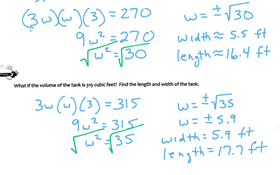 (3w)(w)(3) = 270
w = ±√30
9w² = 270
width ≈ 5.5 ft
√w² = √30
length ≈ 16.4 ft
What if the volume of the tank is 315 cubic feet? Find the length and width of the tank.
3w(w)(3) = 315
w = ±√35
9w² = 315
w = ± 5.9
√w² = √35
width = 5.9 ft
length = 17.7 ft